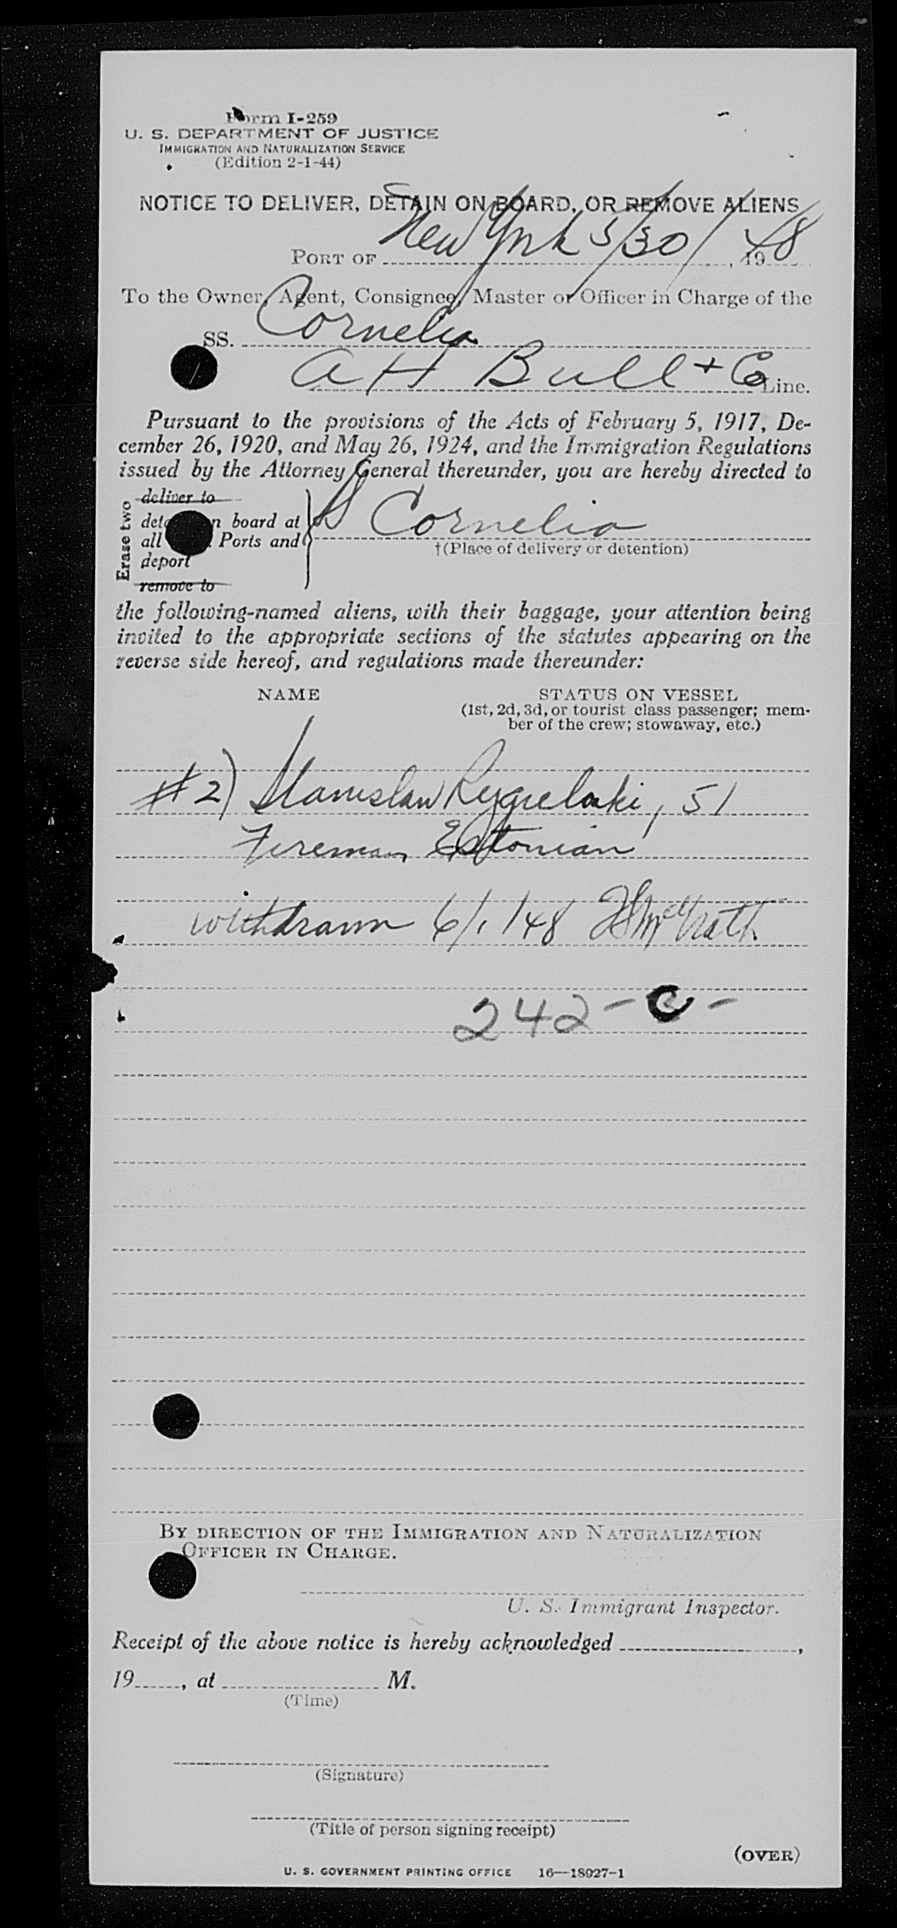 Form I-259
U. S. DEPARTMENT OF JUSTICE
IMMIGRATION AND NATURALIZATION SERVICE
(Edition 2-1-44)
NOTICE TO DELIVER, DETAIN ON BOARD, OR REMOVE ALIENS
PORT OF New York 5/30/, 1948
To the Owner, Agent, Consignee, Master or Officer in Charge of the
SS. Cornelia
A H Bull + Co Line.
Pursuant to the provisions of the Acts of February 5, 1917, De-
cember 26, 1920, and May 26, 1924, and the Immigration Regulations
issued by the Attorney General thereunder, you are hereby directed to
Erase two
deliver to
n board at
all Ports and
deport
remove to
SS Cornelia
†(Place of delivery or detention)
the following-named aliens, with their baggage, your attention being
invited to the appropriate sections of the statutes appearing on the
reverse side hereof, and regulations made thereunder:
NAME STATUS ON VESSEL
(1st, 2d, 3d, or tourist class passenger; mem-
ber of the crew; stowaway, etc.)
#2) Stanislaw 51
Fireman Estonian
withdrawn 6/1/48 McGrath
242-
BY DIRECTION OF THE IMMIGRATION AND NATURALIZATION
OFFICER IN CHARGE.
U. S. Immigrant Inspector.
Receipt of the above notice is hereby acknowledged ,
19 , at M.
(Time)
(Signature)
(Title of person signing receipt)
(OVER)
U. S. GOVERNMENT PRINTING OFFICE 16—18927-1